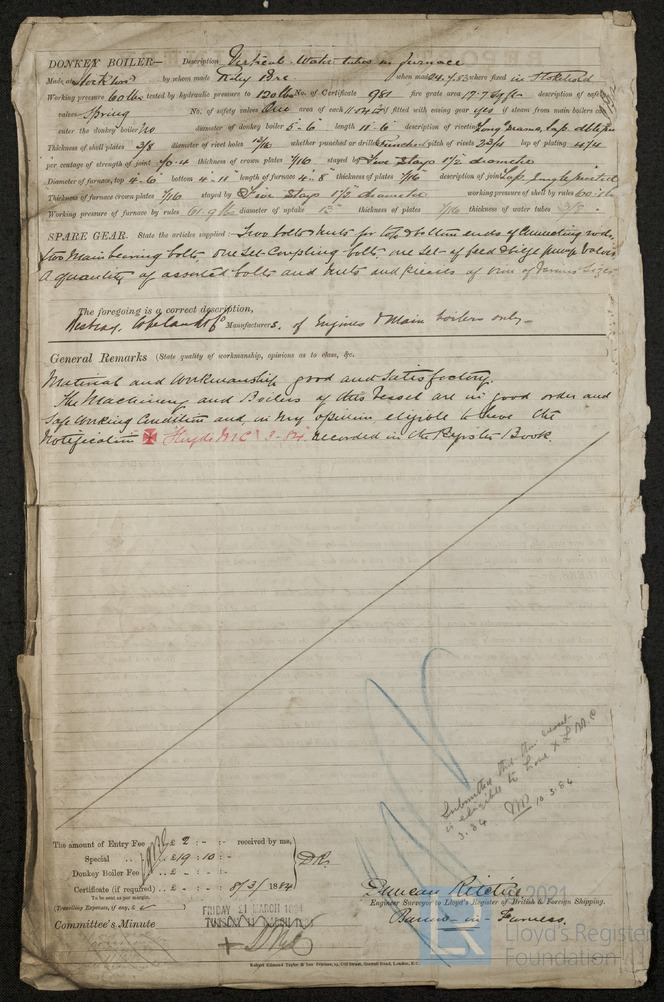 DONKEY BOILER— Description Vertical Water tubes in furnace
Made at Stockton by whom made Riley Bro when made 24.7.83 where fixed in Stokehold
Working pressure 60 lbs tested by hydraulic pressure to 120 lbs No. of Certificate 981 fire grate area 17.7 sqft description of safety
valves Spring No. of safety valves One area of each 11.04 if fitted with easing gear yes if steam from main boilers can
enter the donkey boiler No diameter of donkey boiler 5-6 length 11-6 description of riveting Long seams, Lap, dble
Thickness of shell plates 3/8 diameter of rivet holes 7/16 whether punched or drilled Punched pitch of rivets 2 3/4 lap of plating
per centage of strength of joint 70.4 thickness of crown plates 7/16 stayed by Five Stays 1 1/2 diametre
Diameter of furnace, top 4-6 bottom 4-11 length of furnace 4-8 thickness of plates 7/16 description of joint Lap, Single riveted
Thickness of furnace crown plates 7/16 stayed by Five Stays 1 1/2 diametre working pressure of shell by rules 60 lbs
Working pressure of furnace by rules 61.9 lbs diameter of uptake 13" thickness of plates 7/16 thickness of water tubes 3/8
SPARE GEAR. State the articles supplied:— Two bolts & Nuts for top & bottom ends of Connecting rods,
two Main bearing bolts, one Set Coupling bolts, one Set of feed & bilge pump Valves
A quantity of assorted bolts and Nuts and Pieces of iron of various Sizes
The foregoing is a correct description,
Westray, Copeland & Co Manufacturers. of Engines & Main boilers only—
General Remarks (State quality of workmanship, opinions as to class, &c.
Material and Workmanship good and Satisfactory.
The Machinery and Boilers of this Vessel are in good order and
Safe Working Condition and, in My opinion, eligible to have the
Notification Lloyds M.C 3-84 recorded in the Register Book.
Submitted that this vessel
is eligible to have X L.M.C
3.84
10.3.84
The amount of Entry Fee .. £ 2 : - : - received by me,
Special .. £19 : 10 : -
Donkey Boiler Fee .. £ - : - : -
Certificate (if required) .. £ - : - : - 8/3/1884
To be sent as per margin.
(Travelling Expenses, if any, £
Committee's Minute
FRIDAY 21 MARCH 1884
Duncan Ritchie
Engineer Surveyor to Lloyd's Register of British & Foreign Shipping.
Barrow-in-Furness.
2021
Lloyd's Register
Foundation